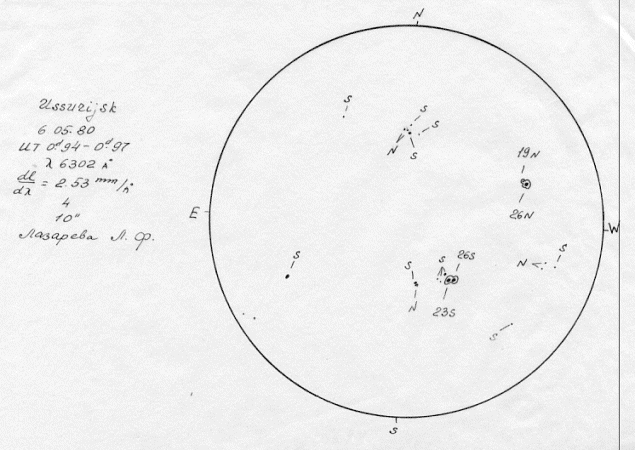 Ussurijsk
6 05.80
UT 0ᵈ94 - 0ᵈ97
λ 6302 Å
dl/dλ = 2.53 mm/Å
4
10"
Лазарева Л. Ф.
N
S
S
S
N
S
19N
26N
E
W
S
N
S
S
S
26S
N
23S
S
S